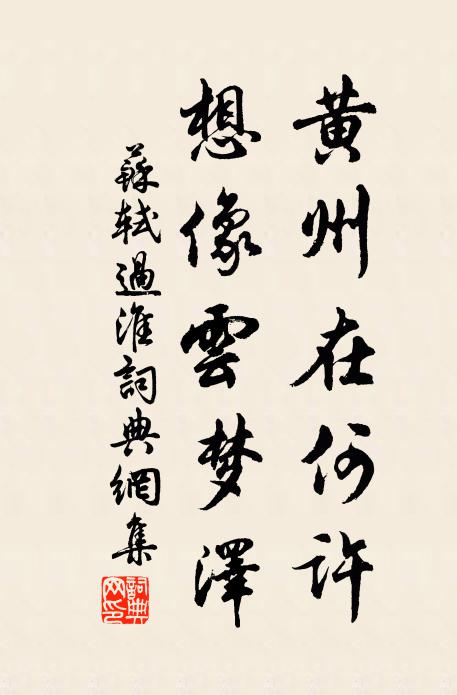 黄州在何許
想像雲梦澤
蘇軾過淮詞典網集
詞典
网印